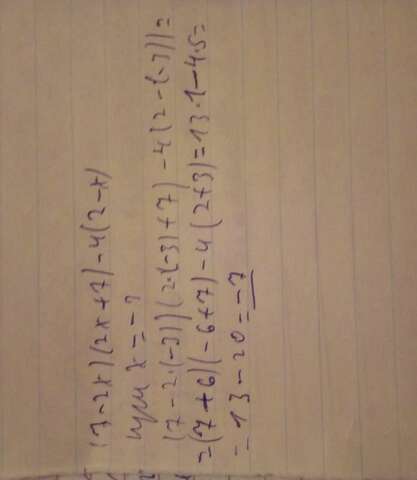 (7-2x)(2x+7)-4(2-x)
при x=-3
(7-2·(-3))(2·(-3)+7)-4(2-(-3))=
=(7+6)(-6+7)-4(2+3)=13·1-4·5=
=13-20=-7